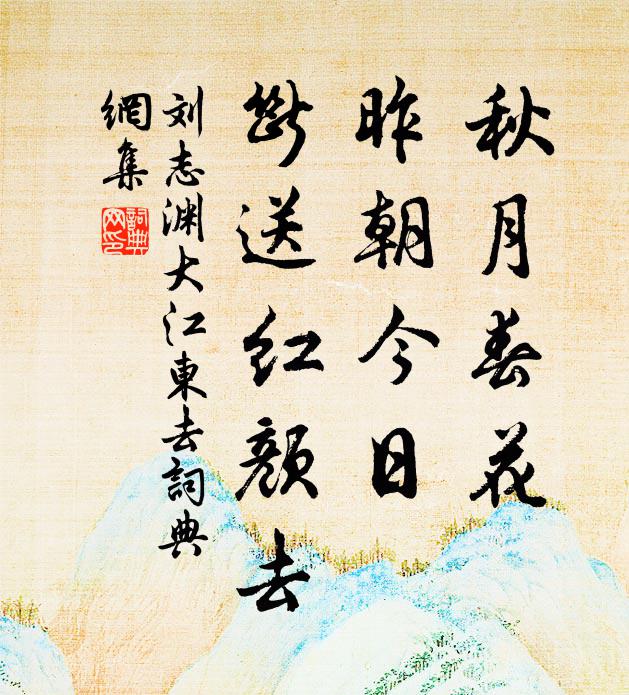 秋月春花
昨朝今日
斷送紅顏去
刘志渊大江東去詞典
網集
詞典
网印